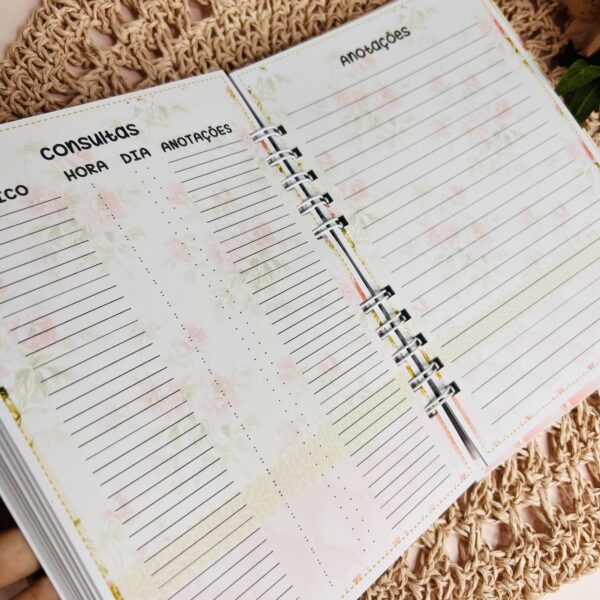 Consultas
ICO HORA DIA ANOTAÇÕES
Anotações